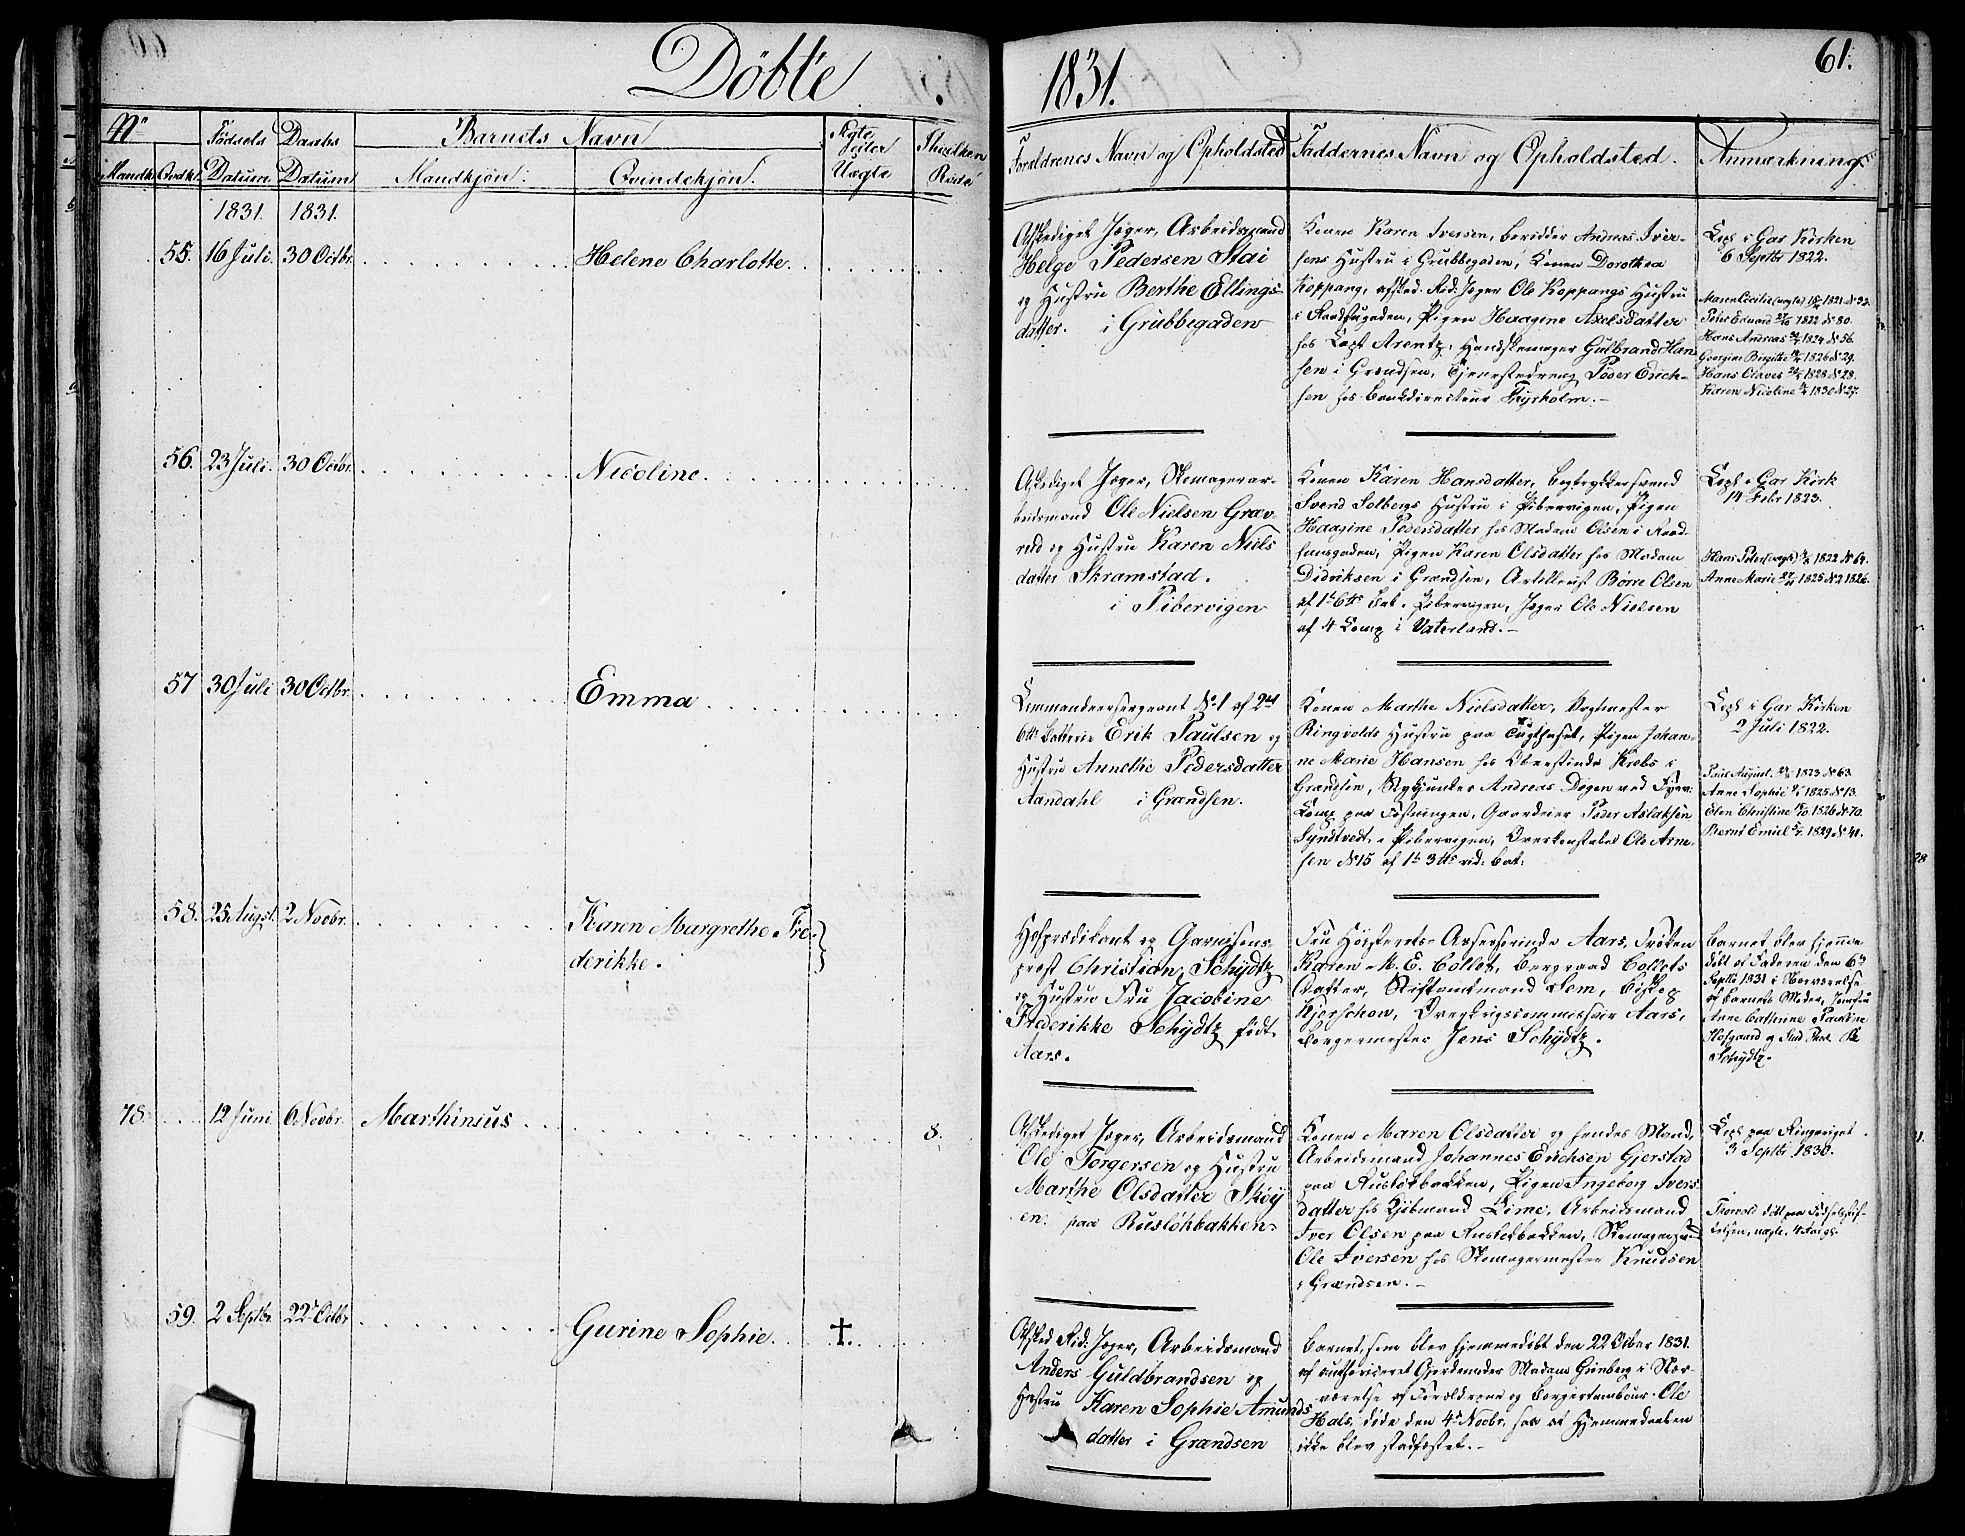 Döbte
1831.
61.
No
Mandk. Qvdk.
Födsels Datum
Daabs Datum
Barnets Navn
Mandkjön.
Qvindekjön.
Ægte eller Uægte
Forældrenes Navn og Opholdsted
Faddernes Navn og Opholdsted.
Anmærkning
1831. 1831.
55. 16 Juli. 30 Octbr. Helene Charlotte.
Afskediget Jæger, Arbeidsmand
Helge Pedersen Stai
og Hustru Berthe Ellings-
datter. i Grubbegaden
Konen Karen Iversen, berider Andreas Iver-
sens Hustru i Grubbegaden, Konen Dorothea
Koppang, afsked. Rid. Jæger Ole Koppangs Hustru
i Raadhusgaden, Pigen Haagine Axelsdatter
hos Capt Arentz, Handskemager Gulbrand Han-
sen i Grændsen, Tjenestedreng Peder Erich-
sen hos Bankdirecteur Thyrholm.-
Copl i Gar Kirken
6 Septbr 1822.
Peter Edvard 1822 No 80.
Hans Andreas 1824 No 56.
Georgine Birgitte 1826 No 29.
Hans Olaves 1828 No 28.
Karen Nicoline 1830 No 27.
56. 23 Juli. 30 Octbr. Nicoline.
Afskediget Jæger, Skomagerar-
beidsmand Ole Nielsen Grav
rud og Hustru Karen Niels
datter Skramstad.
i Pibervigen
Konen Karen Hansdatter, Bogtrykkersvend
Svend Solbergs Hustru i Pibervigen, Pigen
Haagine Pedersdatter hos Madam Olsen i Raad-
husgaden, Pigen Karen Olsdatter hos Madam
Didriksen i Grændsen, Artillerist Börre Olsen
af 1te 6te Bat. Pibervigen, Jæger Ole Nielsen
af 4 Comp i Vaterland.-
Copl i Gar Kirk
14 Febr 1823.
Anne Marie 1825 No 2 1826.
57 30 Juli 30 Octbr. Emma
Commandeersergeant No 1 af 2det
6te Batterie Erik Paulsen og
Hustru Annethe Pedersdatter
Aandahl i Grændsen.
Konen Marthe Nielsdatter, Vogtmester
Ringvolds Hustru paa Tugthuset, Pigen Johan-
ne Marie Hansen hos Oberstinde Krebs i
Grændsen, Stykjunker Andreas Degen ved Fyrv.
Comp paa Fæstningen, Gaardeier Peder Aslaksen
Syndtvedt i Pibervigen, Overkonstabel Ole Arne-
sen No 15 af 1te 3die rid. Bat:
Copl i Gar Kirken
2 Juli 1822.
Paul August. 1823 No 63
Anne Sophie 1825 No 13.
Elen Christine 1826 No 70.
Bernt Emiel 1829 No 41.
58. 25 Augst. 2 Novbr. Karen Margrethe Fre-
derikke.
Hofprædikant og Garnisons-
prost Christian Schydtz
og Hustru Fru Jacobine
Frederikke Schydtz född
Aars.
Fru Höisterets-Assessorinde Aars, Fröken
Karen M. E. Collet, Bergraad Collets
Datter, Stiftamtmand Sem, Biskop
Kjerschow, Overkrigscommissair Aars,
Borgermester Jens Schydtz.
Barnet blev hjemme
döbt af Faderen den 6te
Septbr 1831 i Nærværelse
af Barnets Moder, Jomfru
Anne Cathrine Pauline
Hofgaard og Stud Theol
Schydtz.
78. 12 Juni 6 Novbr. Marthinius 8.
Afskediget Jæger, Arbeidsmand
Ole Torgersen og Hustru
Marthe Olsdatter Skiöy
en. paa Ruslökbakken
Konen Maren Olsdatter og hendes Mand,
Arbeidsmand Johannes Erichsen Gjerstad
paa Ruslökbakken, Pigen Ingeborg Ivers
datter hos Kjöbmand Lime, Arbeidsmand
Iver Olsen paa Ruslökbakken, Skomagersvend
Ole Iversen hos Skomagermester Knudsen
i Grændsen.-
Copl paa Ringeriget
3 Septbr 1830.
Thorvald döbt paa Födselsstif-
telsen, uægte, 4 Aar gl.
59. 2 Septbr 22de Octbr Gurine Sophie. †.
Afsked Rid: Jæger, Arbeidsmand
Anders Guldbrandsen og
Hustru Karen Sophie Amunds
datter i Grændsen
Barnet, som blev hjemmedöbt den 22 Octber 1831.
af authoriseret Gjordemoder Madam Grönberg i Nær-
værelse af Forældrene og Borgertambour Ole
Hals, döde den 4de Novbr, saa at Hjemmedaaben
ikke blev stadfæstet.-